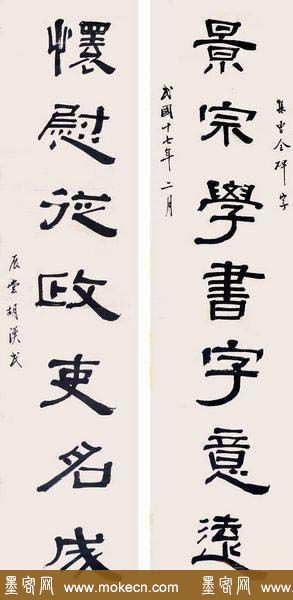 集曹全碑字
景宗學書字意遠
民國十七年二月
懷慰從政吏名成
展堂胡漢民
墨客网 www.mokecn.com
墨客网 www.mokecn.com